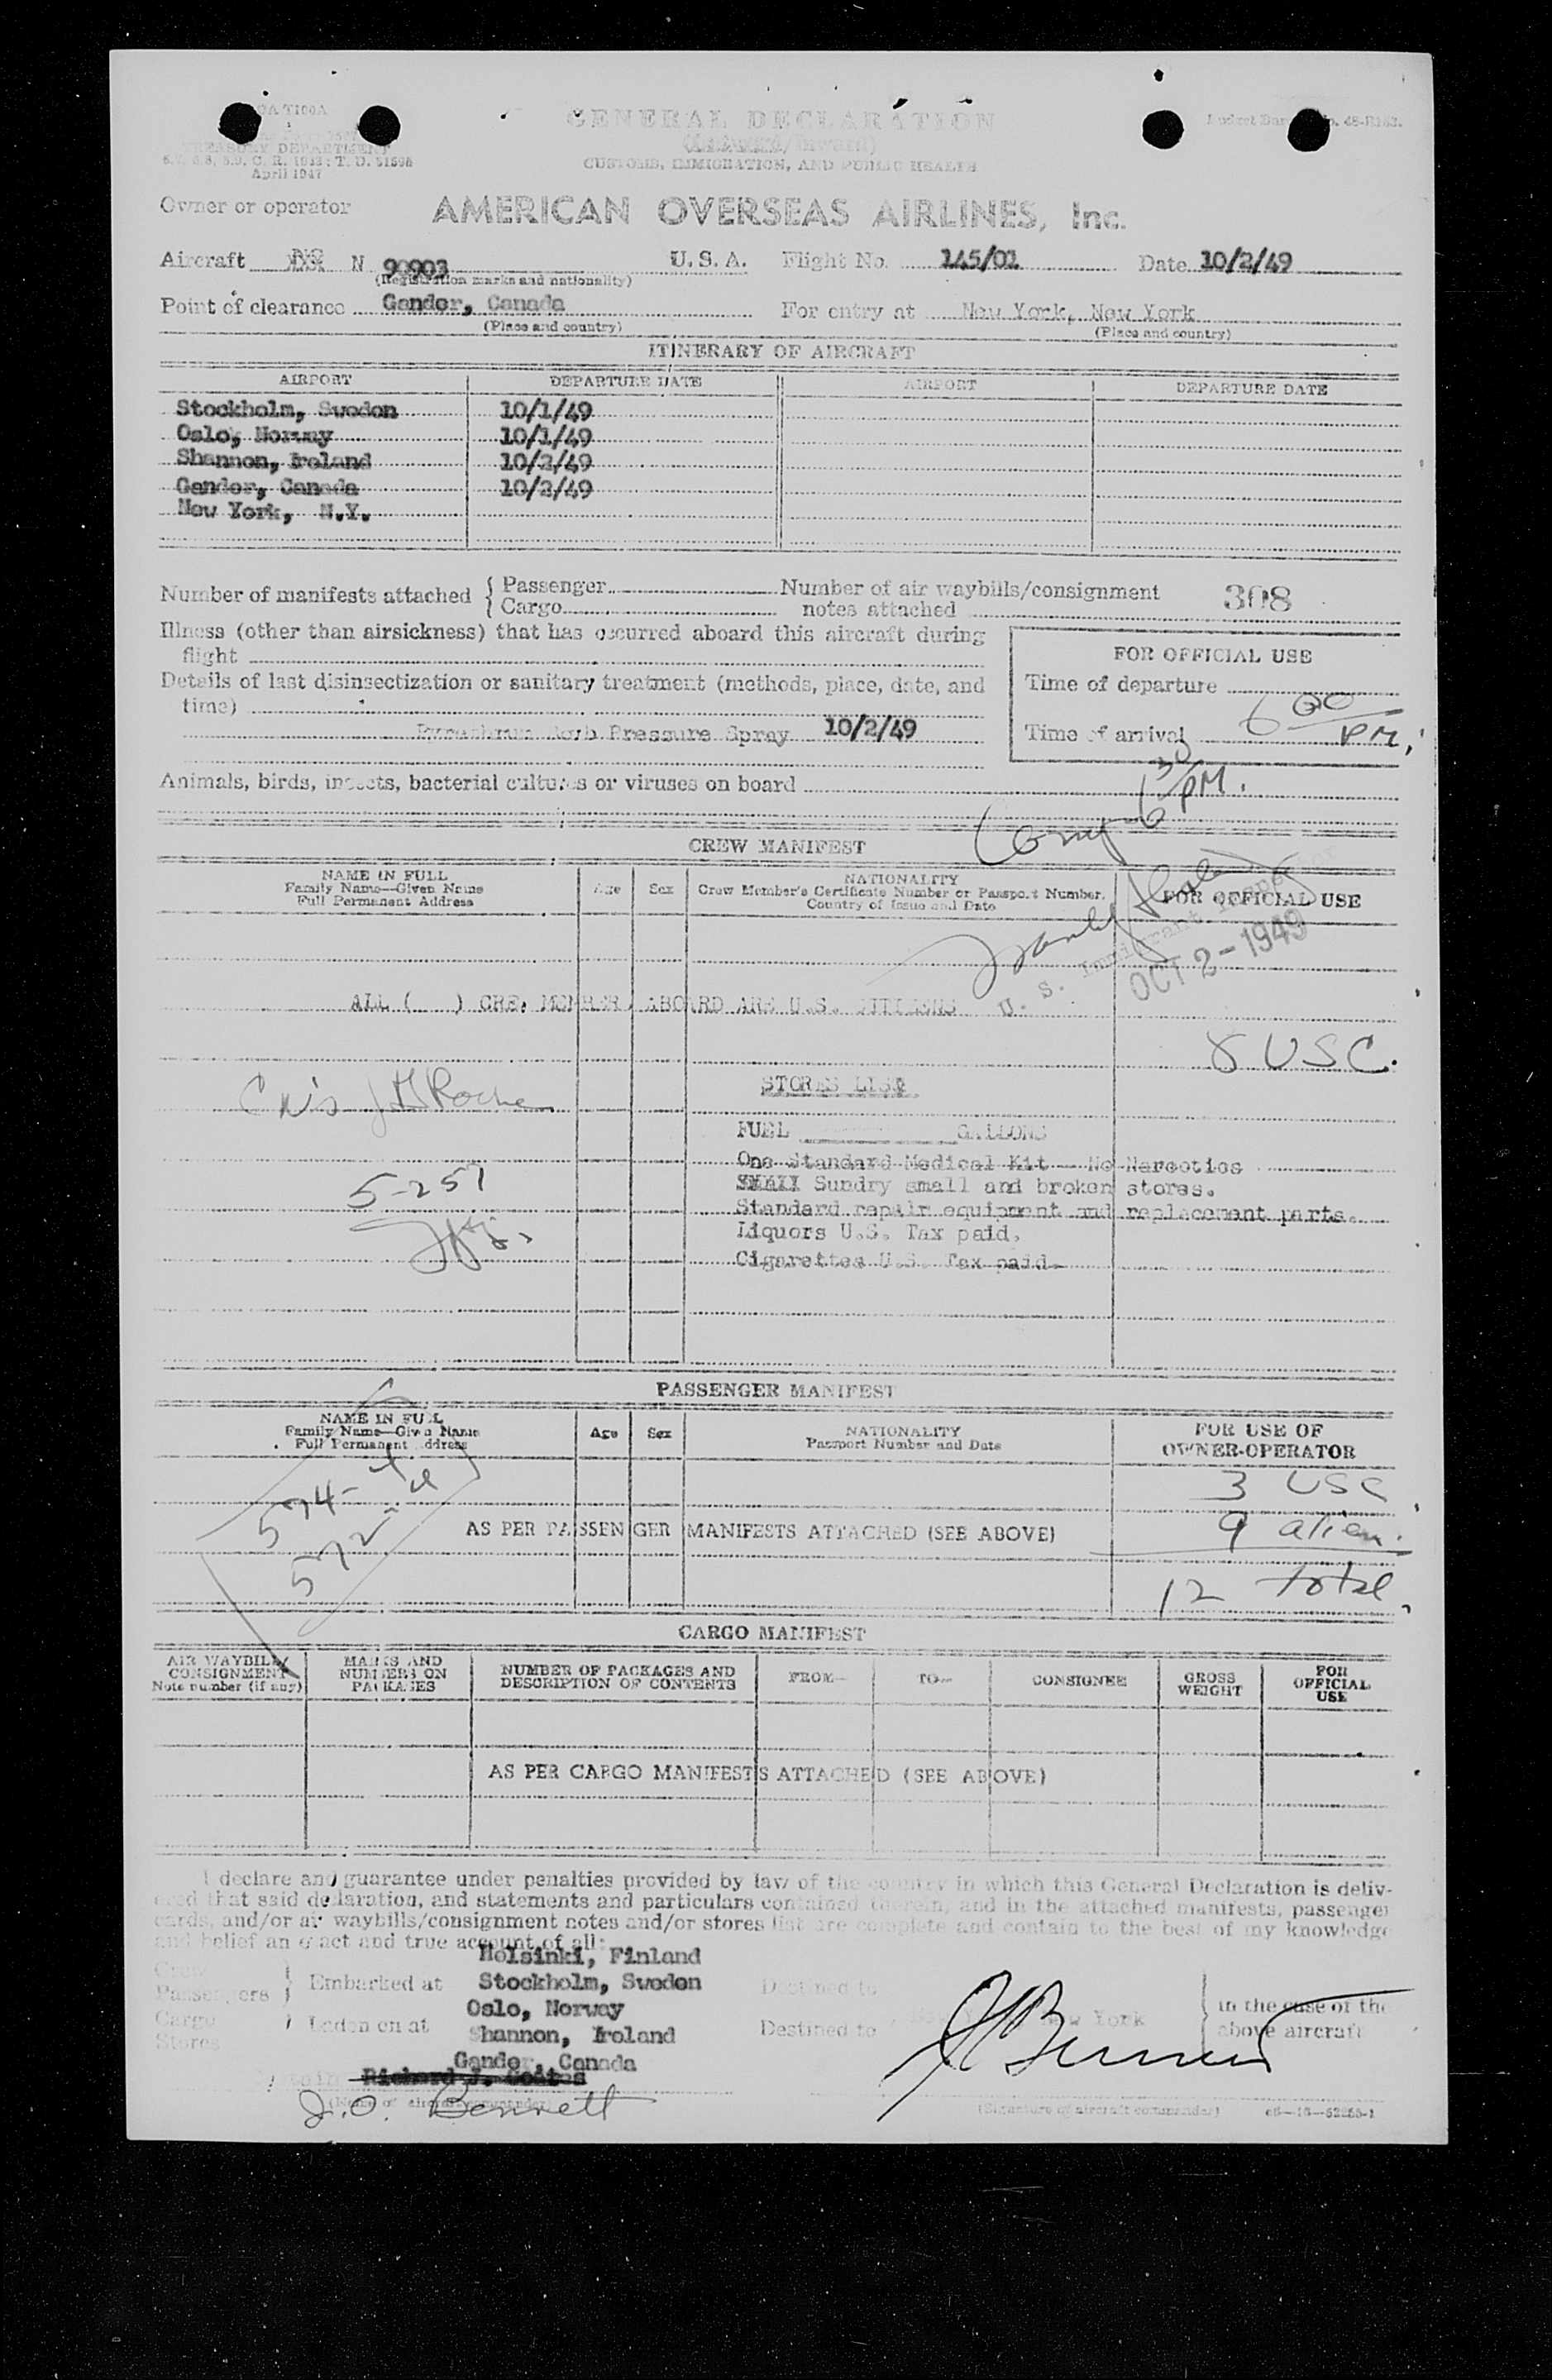 TREASURY DEPARTMENT
April 1947
GENERAL DECLARATION
CUSTOMS, IMMIGRATION, AND PUBLIC HEALTH
Owner or operator AMERICAN OVERSEAS AIRLINES, Inc.
Aircraft N 90903 U.S.A. Flight No. 145/01 Date 10/2/49
(Registration marks and nationality)
Point of clearance Gander, Canada For entry at New York, New York
(Place and country) (Place and country)
ITINERARY OF AIRCRAFT
AIRPORT DEPARTURE DATE AIRPORT DEPARTURE DATE
Stockholm, Sweden 10/1/49
Oslo, Norway 10/1/49
Shannon, Ireland 10/2/49
Gander, Canada 10/2/49
New York, N.Y.
Number of manifests attached { Passenger Number of air waybills/consignment 308
{ Cargo notes attached
Illness (other than airsickness) that has occurred aboard this aircraft during
flight
FOR OFFICIAL USE
Details of last disinsectization or sanitary treatment (methods, place, date, and
time)
Time of departure
Pressure Spray 10/2/49
Time of arrival 6 00 PM.
Animals, birds, insects, bacterial cultures or viruses on board
6 30 PM.
CREW MANIFEST
NAME IN FULL
Family Name—Given Name
Full Permanent Address
Age Sex
NATIONALITY
Crew Member's Certificate Number or Passport Number,
Country of Issue and Date
FOR OFFICIAL USE
U. S. Immigrant Inspector
OCT 2-1949
ALL ( ) CREW MEMBERS ABOARD ARE U.S. CITIZENS
8 USC.
STORES LIST
Roche
FUEL GALLONS
One Standard Medical Kit - No Narcotics
Sundry small and broken stores.
5-257
Standard repair equipment and replacement parts.
Liquors U.S. Tax paid.
Cigarettes U.S. Tax paid.
PASSENGER MANIFEST
NAME IN FULL
Family Name—Given Name
Full Permanent Address
Age Sex
NATIONALITY
Passport Number and Date
FOR USE OF
OWNER-OPERATOR
3 USC
574-4
572-4
AS PER PASSENGER MANIFESTS ATTACHED (SEE ABOVE)
9 alien.
12 total.
CARGO MANIFEST
AIR WAYBILL/
CONSIGNMENT
Note number (if any)
MARKS AND
NUMBERS ON
PACKAGES
NUMBER OF PACKAGES AND
DESCRIPTION OF CONTENTS
FROM— TO— CONSIGNEE
GROSS
WEIGHT
FOR
OFFICIAL
USE
AS PER CARGO MANIFESTS ATTACHED (SEE ABOVE)
I declare and guarantee under penalties provided by law of the country in which this General Declaration is deliv-
ered that said declaration, and statements and particulars contained therein, and in the attached manifests, passenger
cards, and/or air waybills/consignment notes and/or stores list are complete and contain to the best of my knowledge
and belief an exact and true account of all:
Helsinki, Finland
Crew
Passengers } Embarked at Stockholm, Sweden Destined to
Oslo, Norway
Cargo
Stores } Laden on at Shannon, Ireland Destined to New York
{ in the case of the
above aircraft
Gander, Canada
Richard J. Coates
J.O. Bennett
(Signature of aircraft commander)